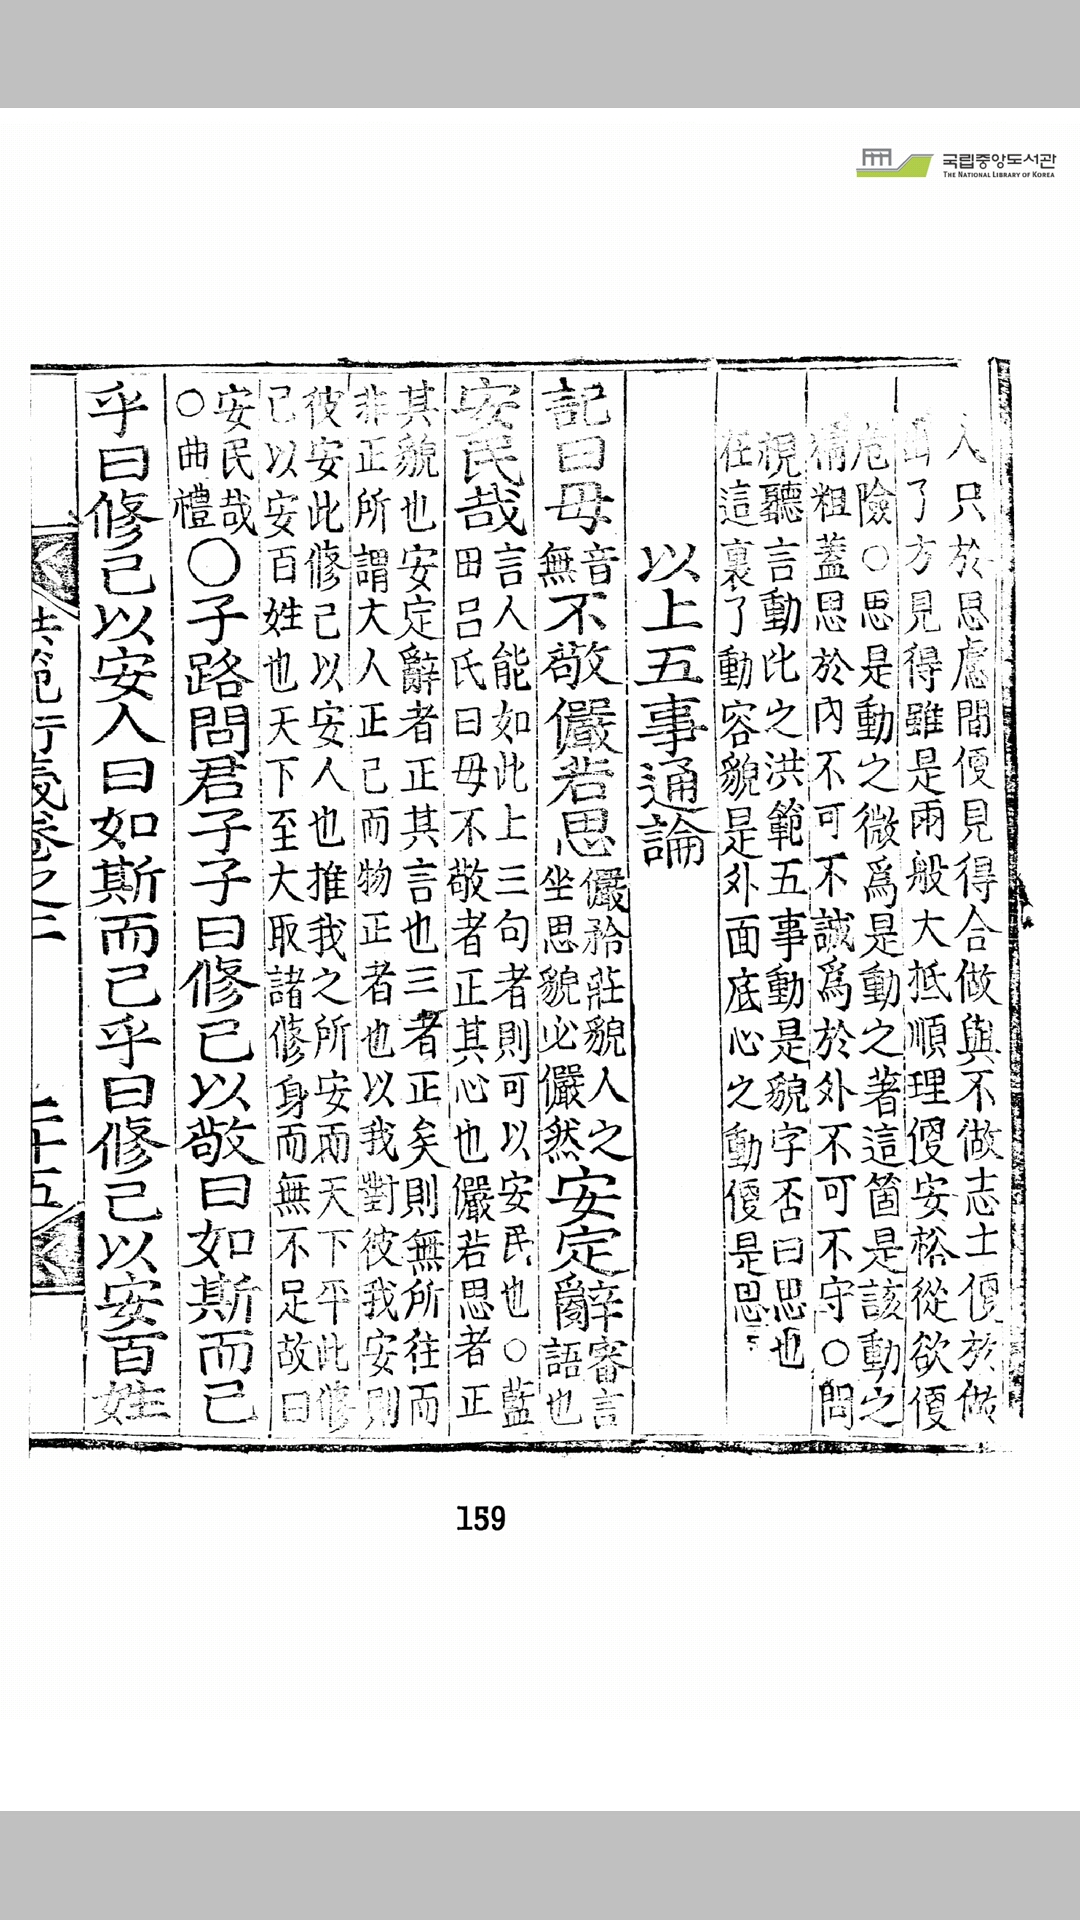 국립중앙도서관
THE NATIONAL LIBRARY OF KOREA
人只於思慮間便見得合做與不做志士便於做
出了方見得雖是兩般大抵順理便安裕從欲便
危險○思是動之微爲是動之著這箇是該動之
精粗蓋思於內不可不誠爲於外不可不守○問
視聽言動比之洪範五事動是貌字否曰思也
在這裏了動容貌是外面底心之動便是思
以上五事通論
記曰毋音無不敬儼若思儼矜莊貌人之坐思貌必儼然安定辭審言語也
安民哉言人能如此上三句者則可以安民也○藍
田呂氏曰毋不敬者正其心也儼若思者正
其貌也安定辭者正其言也三者正矣則無所往而
非正所謂大人正己而物正者也以我對彼我安則
彼安此修己以安人也推我之所安而天下平此修
己以安百姓也天下至大取諸修身而無不足故曰
安民哉○曲禮○子路問君子子曰修己以敬曰如斯而己
乎曰修己以安人曰如斯而己乎曰修己以安百姓
洪範衍義卷之二
二十五
159